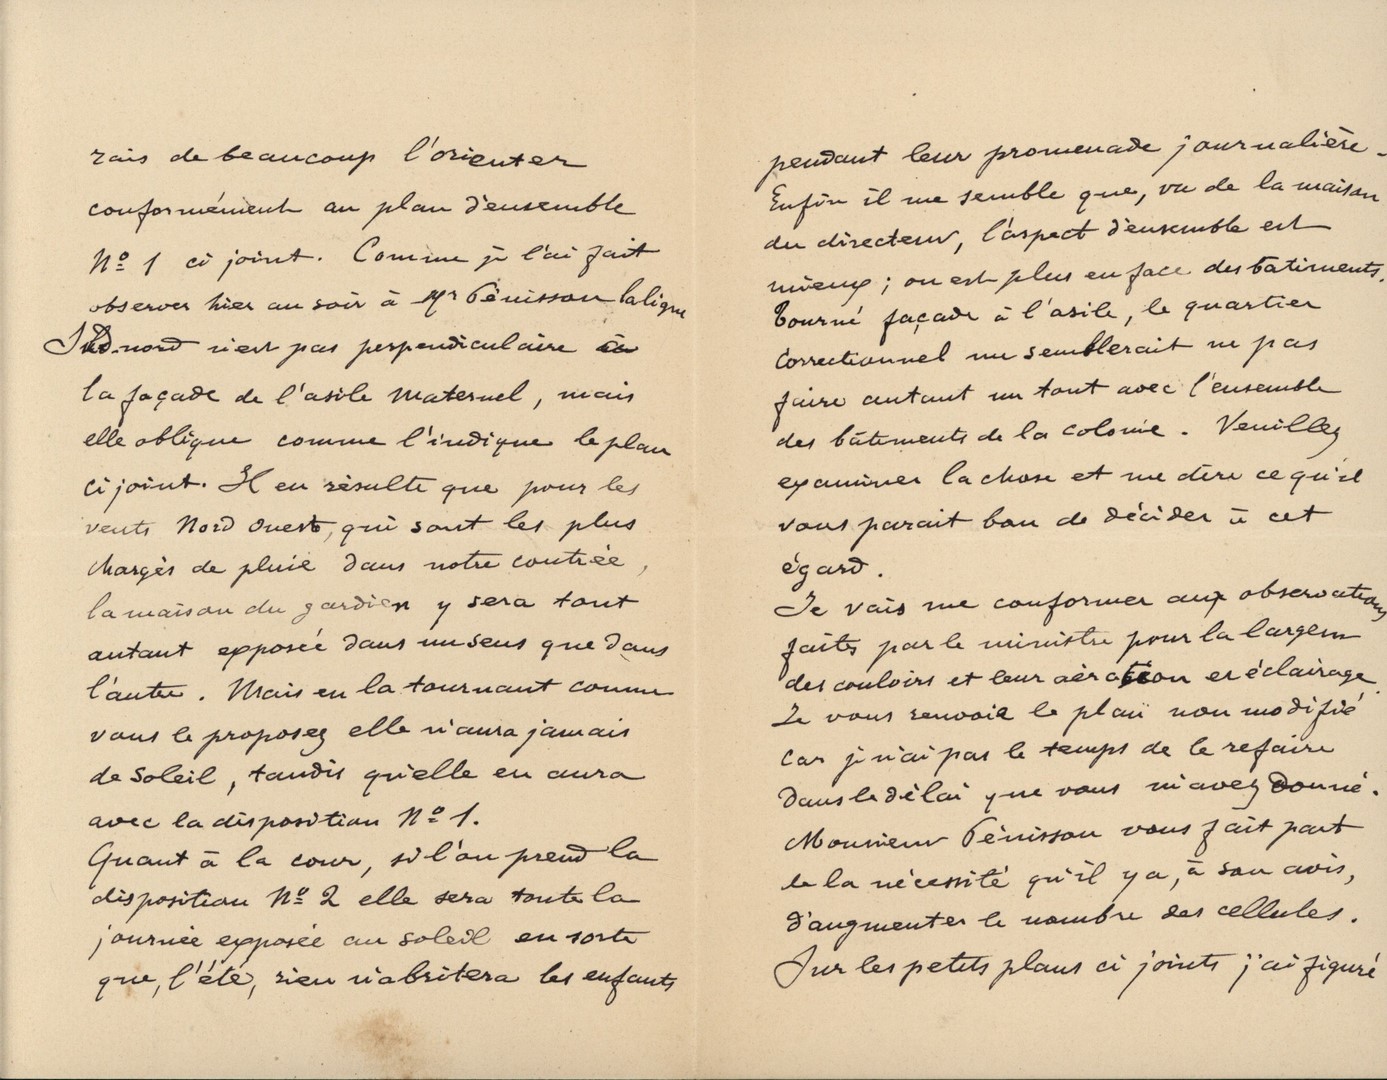 rais de beaucoup l'orienter
conformément au plan d'ensemble
Nº 1 ci joint. Comme je l'ai fait
observer hier au soir à Mr Pénisson la ligne
Sud.nord n'est pas perpendiculaire à
la façade de l'asile maternel, mais
elle oblique comme l'indique le plan
ci joint. Il en résulte que pour les
vents Nord Ouest, qui sont les plus
chargés de pluie dans notre contrée,
la maison du gardien y sera tout
autant exposée dans un sens que dans
l'autre. Mais en la tournant comme
vous le proposez elle n'aura jamais
de soleil, tandis qu'elle en aura
avec la disposition Nº 1.
Quant à la cour, si l'on prend la
disposition Nº 2 elle sera toute la
journée exposée au soleil en sorte
que, l'été, rien n'abritera les enfants
pendant leur promenade journalière.
Enfin il me semble que, vu de la maison
du directeur, l'aspect d'ensemble est
mieux ; on est plus en face des bâtiments.
Tourné façade à l'asile, le quartier
correctionnel me semblerait ne pas
faire autant un tout avec l'ensemble
des bâtiments de la colonie. Veuillez
examiner la chose et me dire ce qu'il
vous parait bon de décider à cet
égard.
Je vais me conformer aux observations
faites par le ministre pour la largeur
des couloirs et leur aération et éclairage.
Je vous renvoie le plan non modifié
car je n'ai pas le temps de le refaire
dans le délai que vous m'avez donné.
Monsieur Pénisson vous fait part
de la nécessité qu'il y a, à son avis,
d'augmenter le nombre des cellules.
Sur les petits plans ci joints j'ai figuré